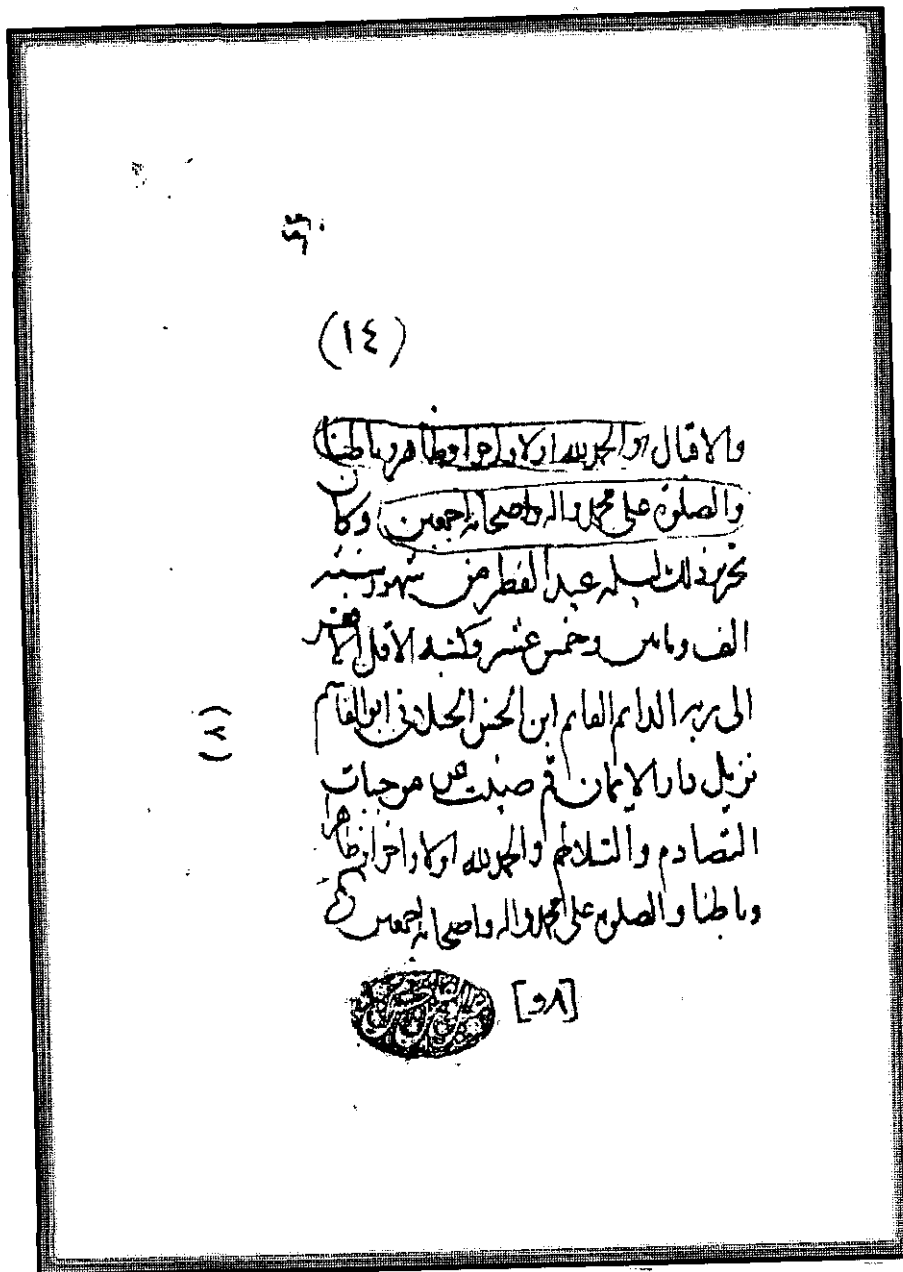 (١٤)
والاقبال والحمد لله اولا واخرا وظاهرا وباطنا
والصلوة على محمد واله واصحابه اجمعين وكان
تحرير ذلك ليله عيد الفطر من شهور سنه
الف وماتين وخمس عشر وكتبه الاقل الافقر
الى ربه الدائم القايم ابن الحسن الجيلاني ابو القاسم
نزيل دار الايمان قم صينت عن موجبات
التصادم والتلاطم والحمد لله اولا واخرا وظاهرا
وباطنا والصلوة على محمد واله واصحابه اجمعين
(٧)
[٨و]